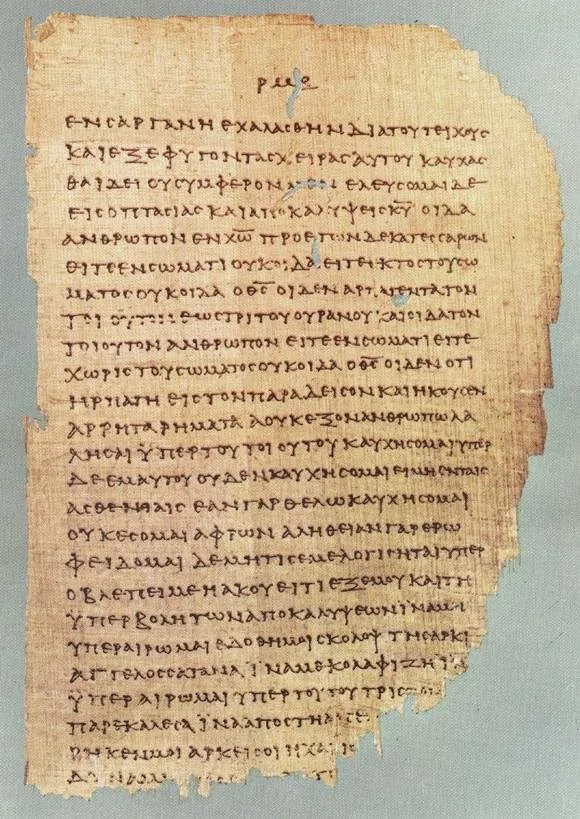 ΡΜΕ
ΕΝϹΑΡΓΑΝΗΕΧΑΛΑϹΘΗΝΔΙΑΤΟΥΤΕΙΧΟΥϹ
ΚΑΙΕΞΕΦΥΓΟΝΤΑϹΧΕΙΡΑϹΑΥΤΟΥΚΑΥΧΑϹ
ΘΑΙΔΕΙΟΥϹΥΜΦΕΡΟΝΜΕΝΕΛΕΥϹΟΜΑΙΔΕ
ΕΙϹΟΠΤΑϹΙΑϹΚΑΙΑΠΟΚΑΛΥΨΕΙϹΚ̅Υ̅ΟΙΔΑ
ΑΝΘΡΩΠΟΝΕΝΧ̅Ω̅ΠΡΟΕΤΩΝΔΕΚΑΤΕϹϹΑΡΩΝ
ΕΙΤΕΕΝϹΩΜΑΤΙΟΥΚΟΙΔΑΕΙΤΕΙΕΚΤΟϹΤΟΥϹΩ
ΜΑΤΟϹΟΥΚΟΙΔΑΟΘ̅Ϲ̅ΟΙΔΕΝΑΡΠΑΓΕΝΤΑΤΟΝ
ΤΟΙΟΥΤΟΝΕΩϹΤΡΙΤΟΥΟΥΡΑΝΟΥΚΑΙΟΙΔΑΤΟΝ
ΤΟΙΟΥΤΟΝΑΝΘΡΩΠΟΝΕΙΤΕΕΝϹΩΜΑΤΙΕΙΤΕ
ΧΩΡΙϹΤΟΥϹΩΜΑΤΟϹΟΥΚΟΙΔΑΟΘ̅Ϲ̅ΟΙΔΕΝΟΤΙ
ΗΡΠΑΓΗΕΙϹΤΟΝΠΑΡΑΔΕΙϹΟΝΚΑΙΗΚΟΥϹΕΝ
ΑΡΡΗΤΑΡΗΜΑΤΑΑΟΥΚΕΞΟΝΑΝΘΡΩΠΩΛΑ
ΛΗϹΑΙΫΠΕΡΤΟΥΤΟΙΟΥΤΟΥΚΑΥΧΗϹΟΜΑΙΥΠΕΡ
ΔΕΕΜΑΥΤΟΥΟΥΔΕΝΚΑΥΧΗϹΟΜΑΙΕΙΜΗΕΝΤΑΙϹ
ΑϹΘΕΝΙΑΙϹΕΑΝΓΑΡΘΕΛΩΚΑΥΧΗϹΟΜΑΙ
ΟΥΚΕϹΟΜΑΙΑΦΡΩΝΑΛΗΘΕΙΑΝΓΑΡΕΡΩ
ΦΕΙΔΟΜΑΙΔΕΜΗΤΙϹΕΜΕΛΟΓΙϹΗΤΑΙΥΠΕΡ
ΟΒΛΕΠΕΙΜΕΗΑΚΟΥΕΙΤΙΕΞΕΜΟΥΚΑΙΤΗ
ΫΠΕΡΒΟΛΗΤΩΝΑΠΟΚΑΛΥΨΕΩΝΪΝΑΜΗ
ΥΠΕΡΑΙΡΩΜΑΙΕΔΟΘΗΜΟΙϹΚΟΛΟΨΤΗϹΑΡΚΙ
ΑΓΓΕΛΟϹϹΑΤΑΝΑΪΝΑΜΕΚΟΛΑΦΙΖΗΪΝΑ
ΫΠΕΡΑΙΡΩΜΑΙΥΠΕΡΤΟΥΤΟΥΤΡΙϹ
ΠΑΡΕΚΑΛΕϹΑΪΝΑΑΠΟϹΤΗΑ
ΡΗΚΕΝΜΟΙΑΡΚΕΙϹΟΙΗΧΑΡΙϹ
ΔΥΝΑΜΙϹ